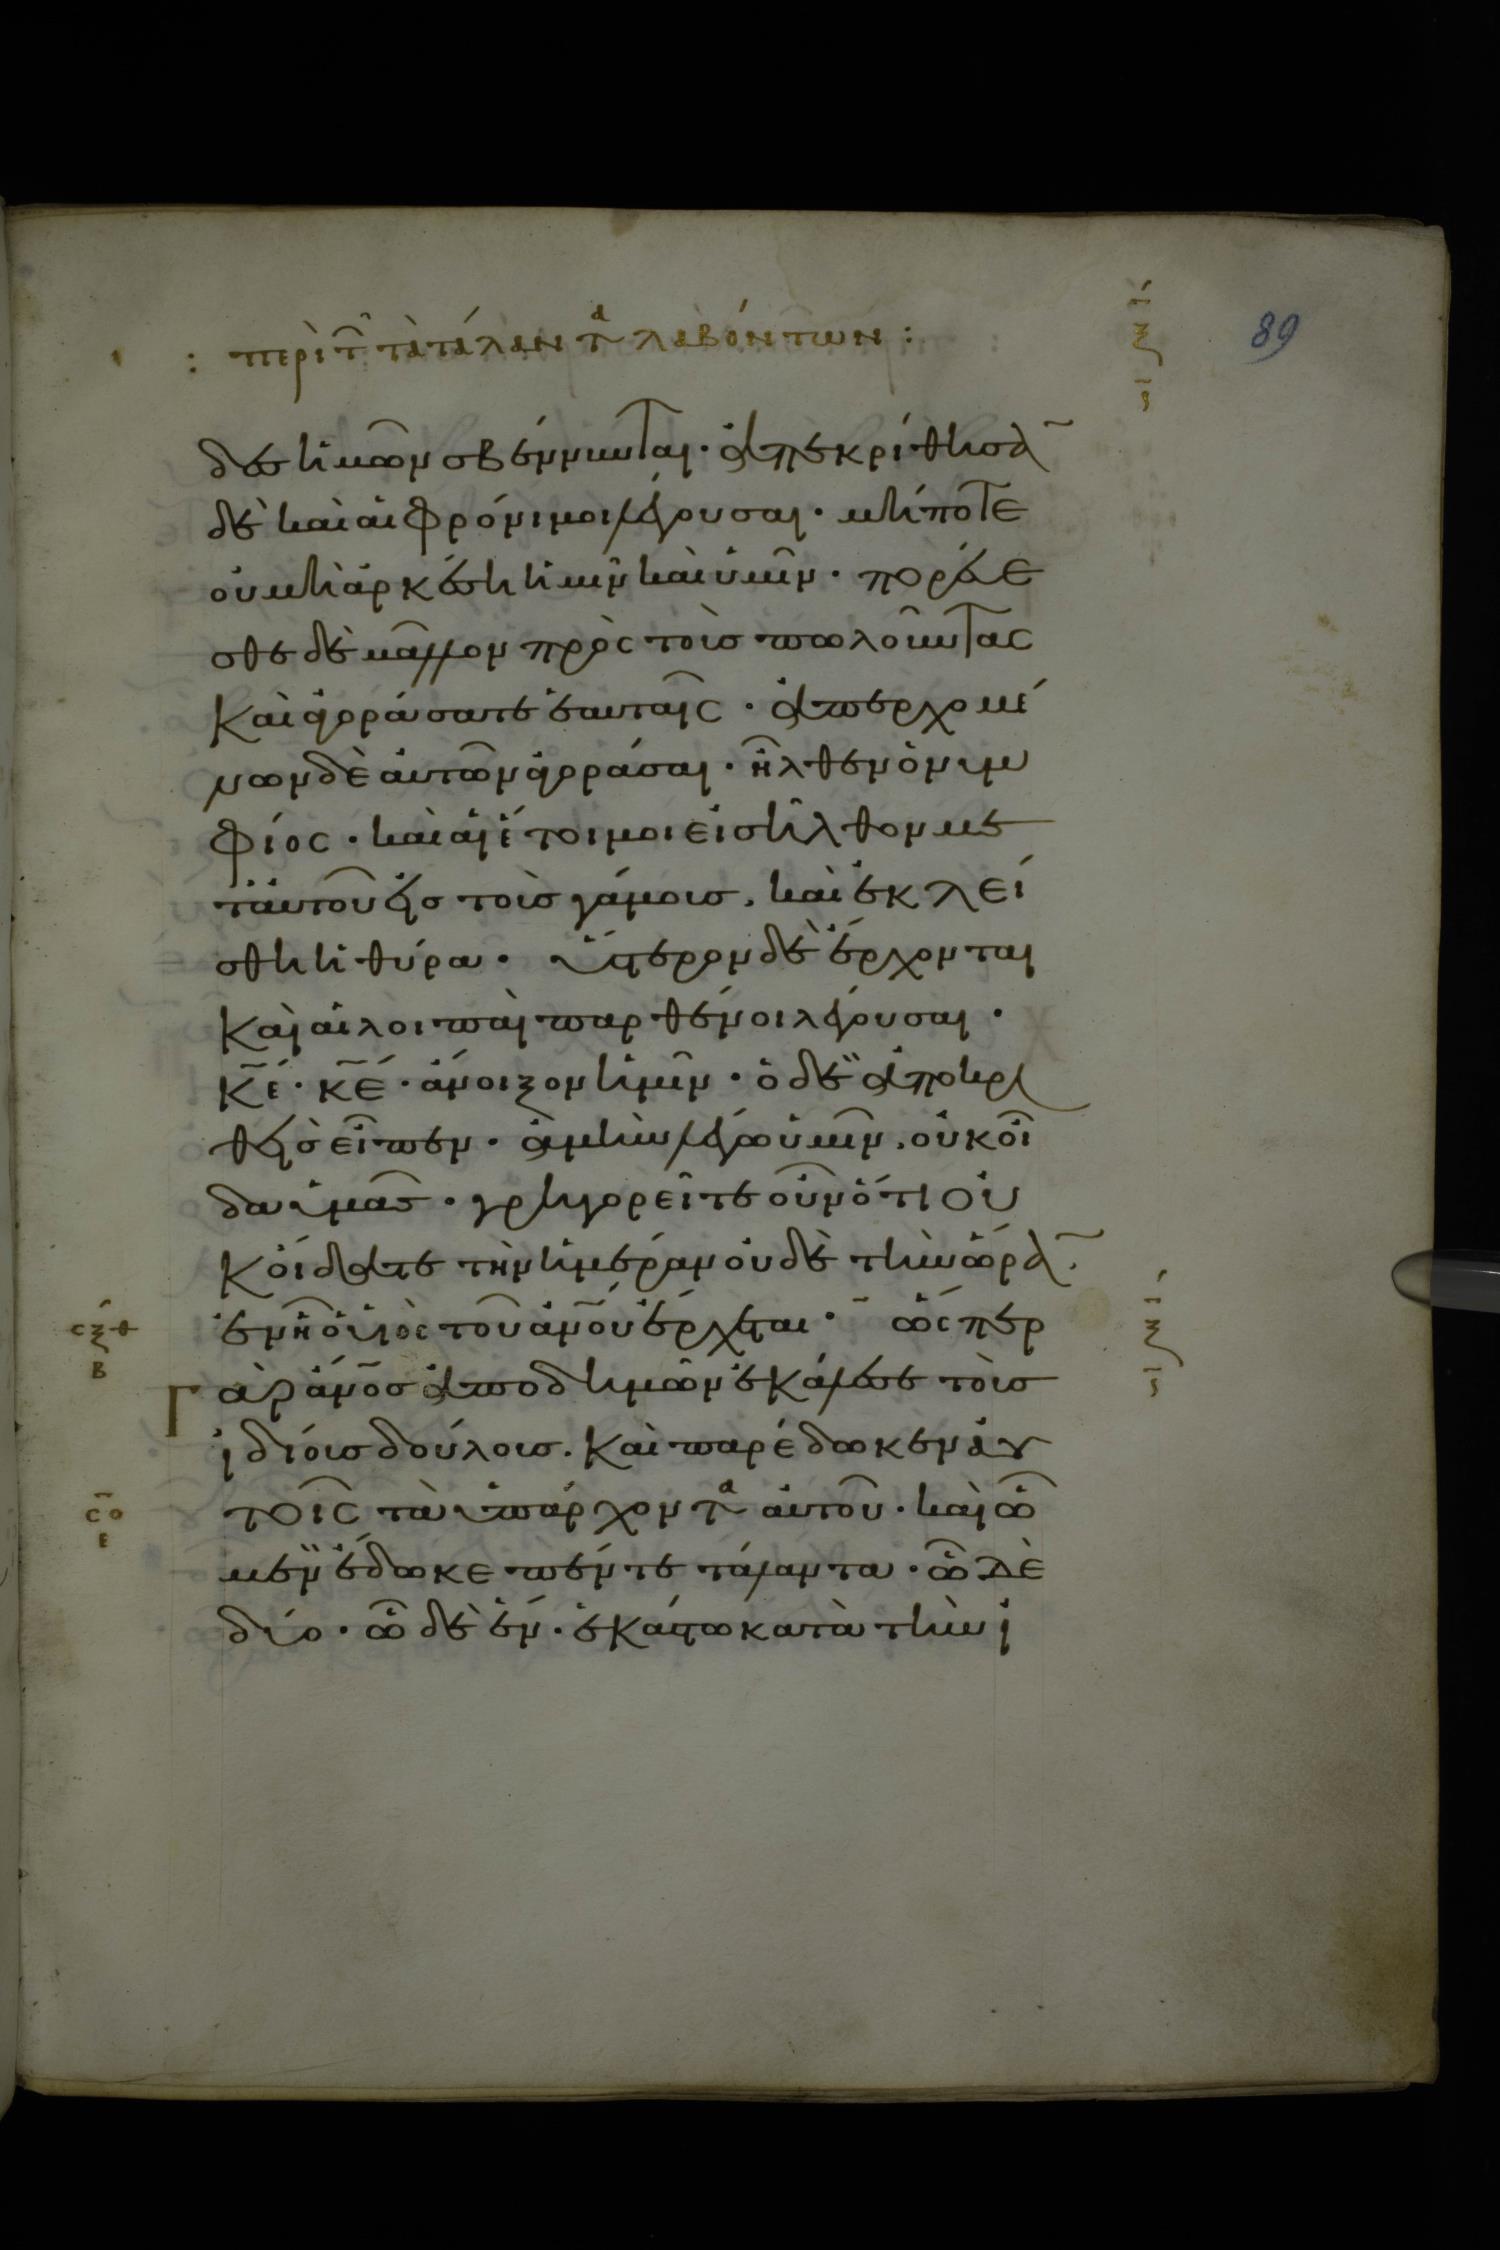 : περὶ τ̑ τὰ τάλαντα λαβόντων :
89
δες ἡμῶν σβέννυνται · ἀπεκρίθησα̅
δὲ καὶ αἱ φρόνιμοι λέγουσαι · μήποτε
οὐ μὴ ἀρκέση ἡμῖν καὶ ὑμῖν · πορεύε
σθε δὲ μᾶλλον πρὸς τοὺσ πωλοῦντας
καὶ ἀγοράσατε ἑαυταῖς · ἀπερχομέ
νων δὲ αὐτῶν ἀγοράσαι · ἦλθεν ὁ νυμ
φίος · καὶ αἱ ἕτοιμοι εἰσῆλθον με
τ᾽ αὐτοῦ εἰσ τοὺσ γάμουσ, καὶ ἐκλεί
σθη ἡ θύρα · ὕστερον δὲ ἔρχονται
καὶ αἱ λοιπαὶ παρθένοι λέγουσαι ·
κ̅ε̅ · κ̅ε̅ · ἄνοιξον ἡμῖν · ὁ δὲ ἀποκρι
θεὶσ εἶπεν · ἀμὴν λέγω ὑμῖν, οὐκ οἶ
δα ὑμᾶς · γρηγορεῖτε οὖν ὅτι οὐ
κ οἴδατε τὴν ἡμέραν οὐδὲ τὴν ὥρα̅ .
ἐν ἧ ὁ υἱὸς τοῦ α̅ν̅ο̅υ̅ ἔρχεται · ὥσπερ
γὰρ α̅ν̅ο̅σ̅ ἀποδημῶν ἐκάλεσε τοὺσ
ἰδίουσ δούλουσ. καὶ παρέδωκεν αὐ
τοῖς τὰ ὑπάρχοντα αὐτοῦ · καὶ ὧ
μὲν ἔδωκε πέντε τάλαντα · ὧ δὲ
δύο · ὧ δὲ ἕν · ἑκάστω κατὰ τὴν ἰ
σξθ
β
σο
ε